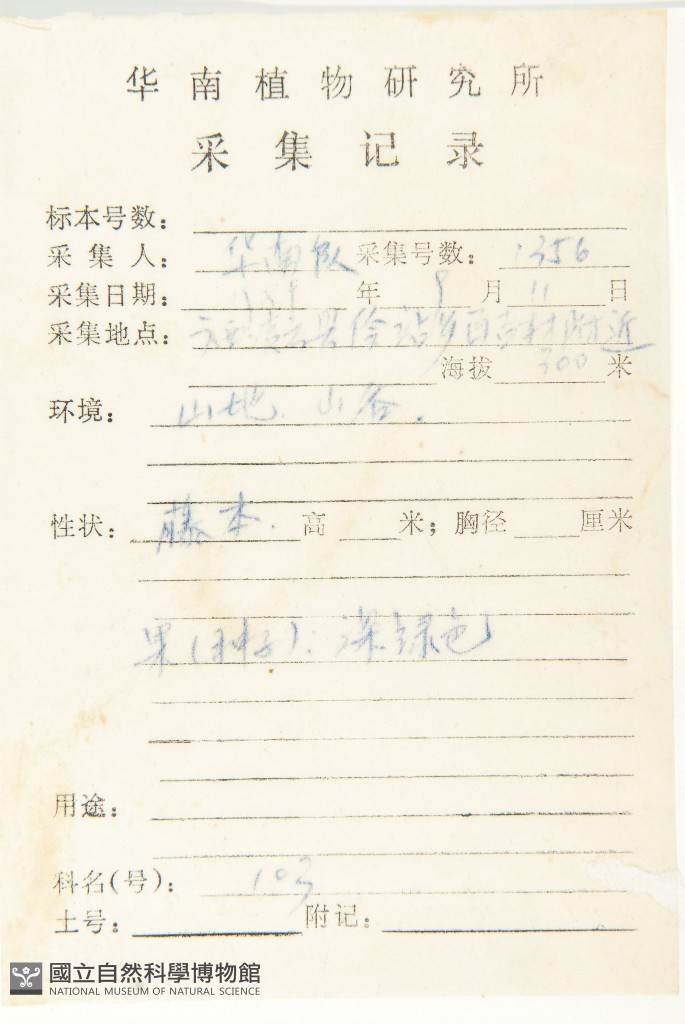 华南植物研究所
采集记录
标本号数:
采集人: 华南队 采集号数: 1356
采集日期: 1989 年 9 月 11 日
采集地点: 县 乡百吉村附近
海拔 300 米
环境: 山地. 山谷.
性状: 藤本. 高 米; 胸径 厘米
果(种子): 深绿色
用途:
科名(号): 103
土号: 附记:
國立自然科學博物館
NATIONAL MUSEUM OF NATURAL SCIENCE